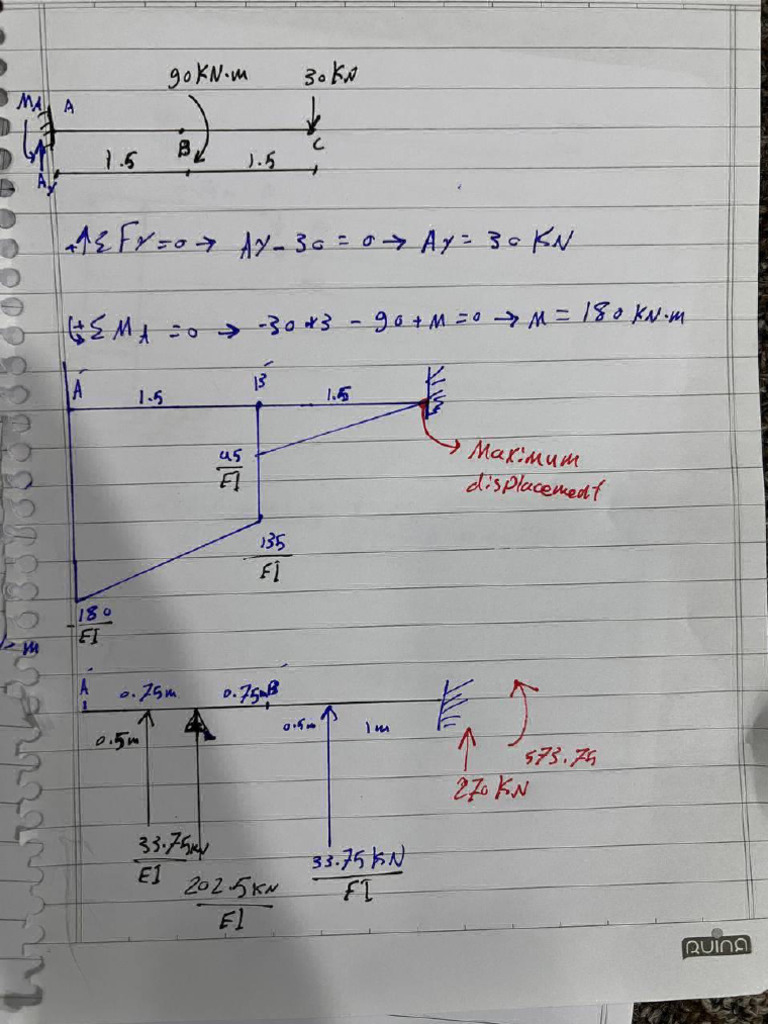 90 KN.m 30 KN
MA A
B C
1.5 1.5
Ay
+↑ΣFy=0 → Ay-30=0 → Ay= 30 KN
(+ΣMA =0 → -30*3 - 90+M=0 → M= 180 KN.m
A' 1.5 B' 1.5
45/EI
Maximum
displacement
135/EI
180/EI
- m
A' 0.75m 0.75m B'
0.5m 0.5m 1m
573.75
270 KN
33.75KN/EI 33.75 KN/EI
202.5KN/EI
RUINA